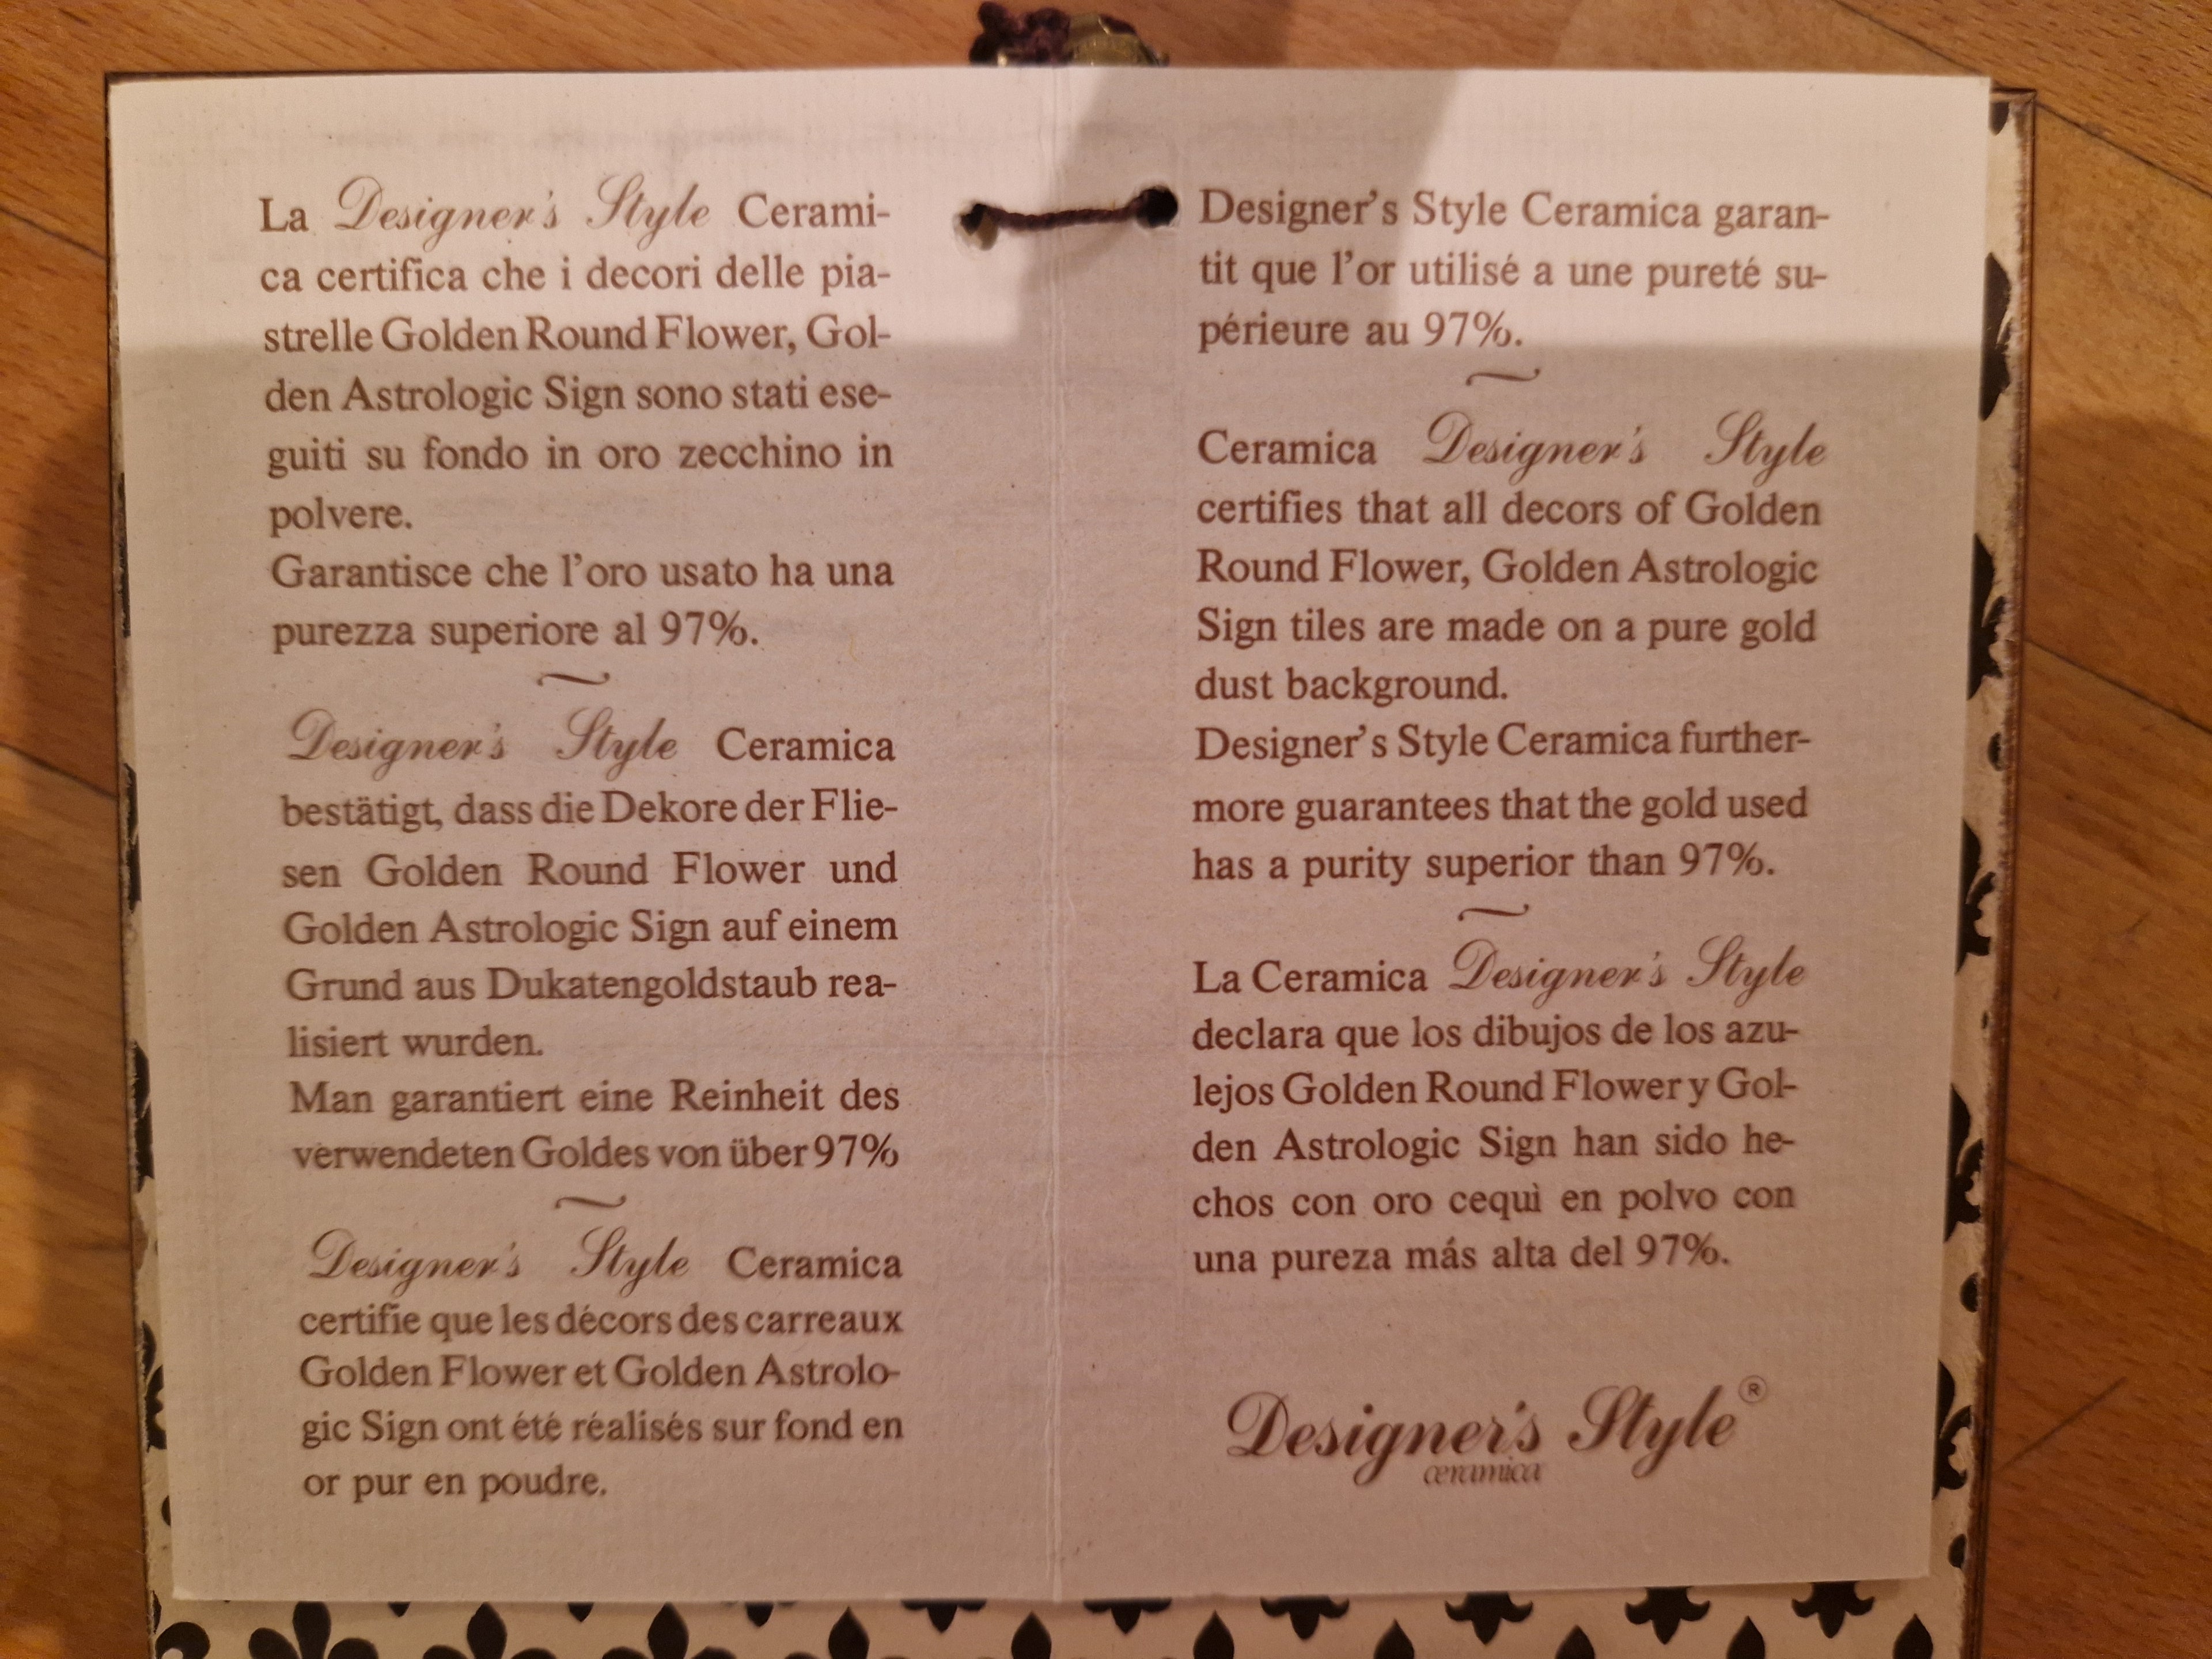 La Designer's Style Cerami-
ca certifica che i decori delle pia-
strelle Golden Round Flower, Gol-
den Astrologic Sign sono stati ese-
guiti su fondo in oro zecchino in
polvere.
Garantisce che l'oro usato ha una
purezza superiore al 97%.
~
Designer's Style Ceramica
bestätigt, dass die Dekore der Flie-
sen Golden Round Flower und
Golden Astrologic Sign auf einem
Grund aus Dukatengoldstaub rea-
lisiert wurden.
Man garantiert eine Reinheit des
verwendeten Goldes von über 97%
~
Designer's Style Ceramica
certifie que les décors des carreaux
Golden Flower et Golden Astrolo-
gic Sign ont été réalisés sur fond en
or pur en poudre.
Designer's Style Ceramica garan-
tit que l'or utilisé a une pureté su-
périeure au 97%.
~
Ceramica Designer's Style
certifies that all decors of Golden
Round Flower, Golden Astrologic
Sign tiles are made on a pure gold
dust background.
Designer's Style Ceramica further-
more guarantees that the gold used
has a purity superior than 97%.
~
La Ceramica Designer's Style
declara que los dibujos de los azu-
lejos Golden Round Flower y Gol-
den Astrologic Sign han sido he-
chos con oro cequì en polvo con
una pureza más alta del 97%.
Designer's Style®
ceramica